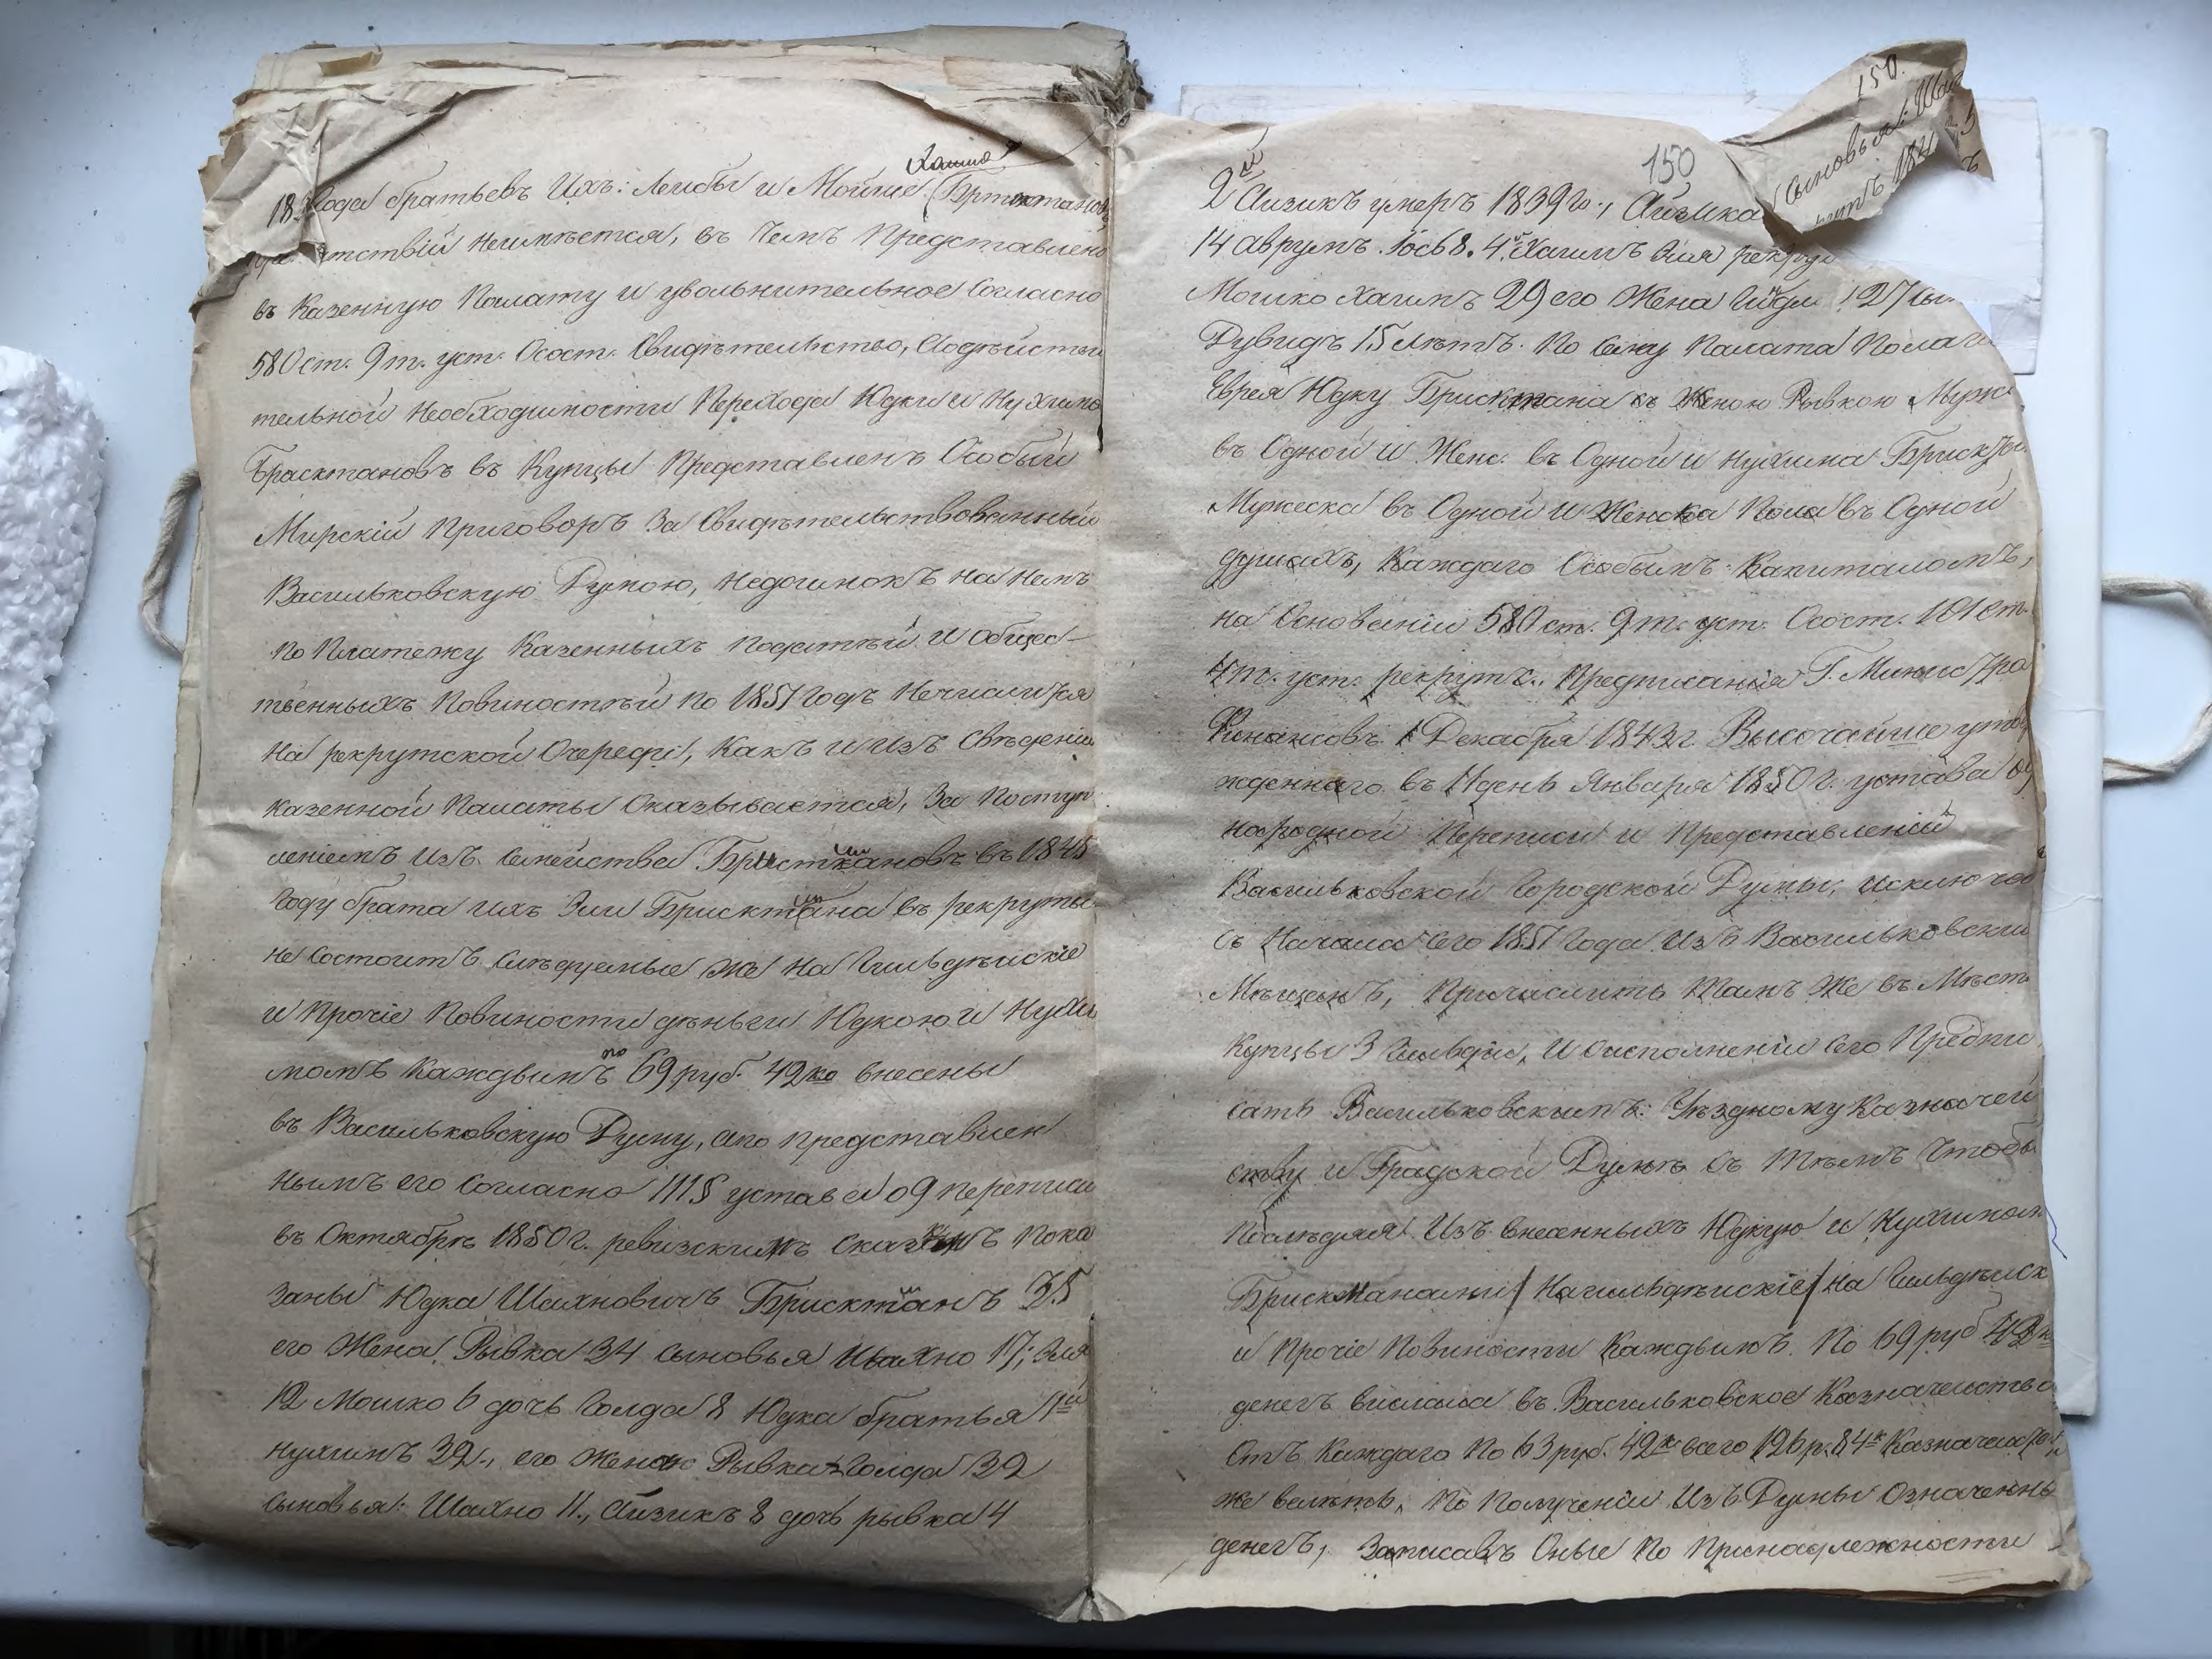 Хаимъ
18 года братьевъ Ихъ: Лейбы и Мойше
неимѣется, въ Чемъ Представлено
въ Казенную Палату и увольнительное Согласно
580 ст. 9 т. уст. О сост. Свидѣтельство,
тельной Необходимости Перехода Юдки и Нухима
Брасктановъ въ Купцы Представленъ Особый
Мирскій Приговоръ За Свидѣтельствованный
Васильковскую Думою, недоимокъ на немъ
по Платежу Казенныхъ податѣй и общес-
твенныхъ Повиностѣй по 1851 годъ Нечислится
На рекрутской Очереди, Какъ и изъ Свѣденій
казенной Палаты Оказывается, За Поступ
леніемъ изъ Семейства въ 1845
Году брата ихъ Эли Брисктана въ рекруты
не Состоитъ Слѣдуемые же На Гильдѣйскіе
и Прочіе Повиности деньги Юдкою и Нухи
момъ Каждымъ по 69 руб. 42 ко внесены
въ Васильковскую Думу, апо представлен
нымъ его Согласно 111 § устава о 9 переписи
въ Октябрѣ 1850 г. ревизскимъ Пока
Заны Юдка Шахновичъ Брисктанъ 35
его Жена Рывка 34 сыновья Шахно 17; Эля
12 Мошко 6 дочь Голда 8 Юдка братья 1й
Нухимъ 32., его Жена Рывка Голда 32
Сыновья: Шахно 11., Айзикъ 8 дочь рывка 4
150
150.
Сыновья: Шах
2й Айзикъ умеръ 1839 го., Айзика
14 Аврумъ. Іось 8. 4й Хаимъ Эля рекру
Мошко Хаимъ 29 его Жена 27 сы
Дувидъ 15 лѣтъ. По Сему Палата Полаг
Еврея Юдку Брисктана съ Женою Рывкою Муже
въ Одной и Женс. въ Одной и Нухима
Мужеска въ Одной и Женска Пола въ Одной
душахъ, Каждаго Особымъ Капиталомъ,
на Основаніи 580 ст. 9 т. уст. О сост. 101 ст.
4 т. уст. рекрутс., Предписанія Г. Министра
Финансовъ 1 Декабря 1843 г. Высочайше утве
жденнаго въ 11 день Января 1850 г. устава о 9
народной Переписи и Представленій
Васильковской Городской Думы, исключев
Съ Начала Сего 1851 Года Изъ Васильковски
Мѣщанъ, Причислить Тамъ Же въ Мѣст
Купцы 3 Гильдіи, И о исполненіи Сего Предпи
сать Васильковскимъ: Уѣздному Казначей
ству и Градской Думѣ Съ Тѣмъ Чтобы
Послѣдняя Изъ внесенныхъ Юдкую и Нухимом
Брискманами / На гильдѣйскіе / на Гильдѣйск
и Прочіе Повиности Каждымъ По 69 руб 42 к
денегъ выслала въ Васильковское Казначейство
Отъ Каждаго По 63 руб. 42 к всего 126 р. 84 к
же велѣть, По Полученіи Изъ Думы Означенны
денегъ, Записавъ Оные По Принадлежности